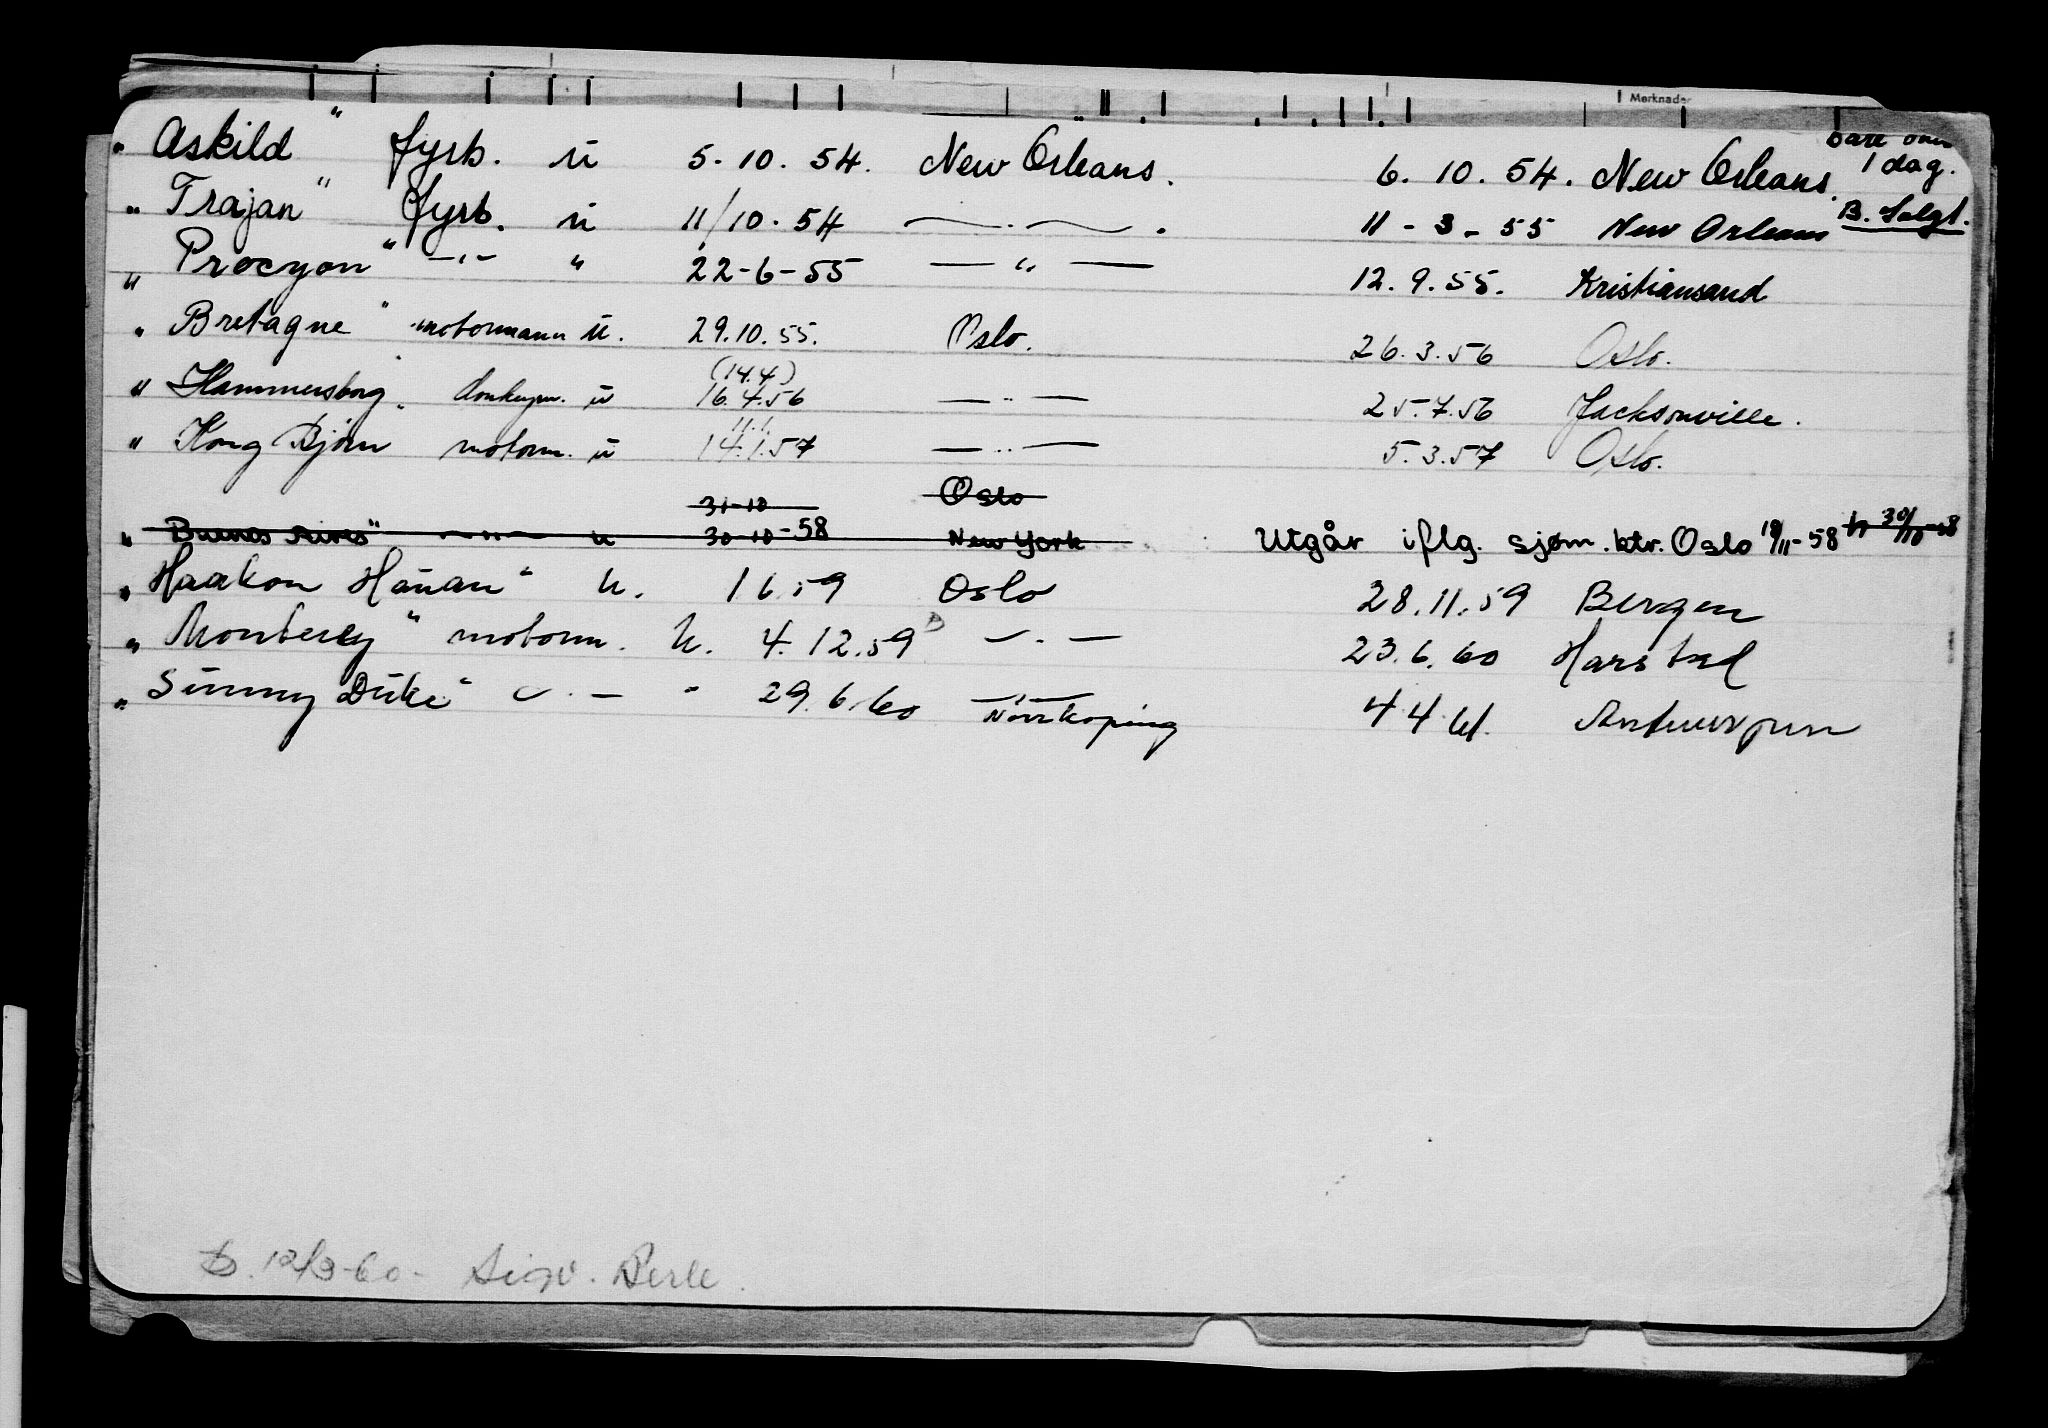 Merknader
„ Askild " fyrb. u 5.10.54. New Orleans. 6.10.54. New Orleans. bare om 1 dag.
„ Trajan " fyrb. u 11/10.54 — . — . 11-3-55 New Orleans B. Solgt.
„ Procyon " -"- " 22-6-55 — " — 12.9.55. Kristiansand
„ Bretagne " motormann u. 29.10.55. Oslo. 26.3.56 Oslo.
(14.4)
„ Hammersborg " donkeym. u 16.4.56 — " — 25.7.56 Jacksonville.
11.1.
„ Kong Bjørn motorm. u 14.1.57 — " — 5.3.57 Oslo.
31-10 Oslo
„ Buenos Aires" -"- u 30-10-58 New York Utgår iflg. sjøm.ktr. Oslo 19/11-58
„ Haakon Hauan " u. 1 6 59 Oslo 28.11.59 Bergen
„ Monterey " motorm. u. 4.12.59 — " — 23.6.60 Harstad
„ Sunny Duke " — . — " 29.6.60 Norrkoping 4 4 61. Antwerpen
12/3-60- Sigv. Berle.